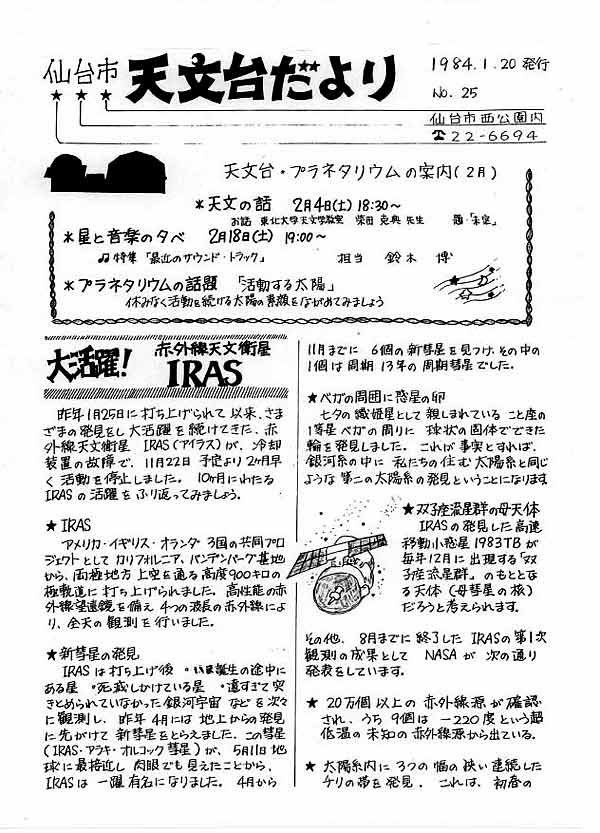 仙台市 天文台だより
1984.1.20 発行
No. 25
仙台市西公園内
☎22-6694
天文台・プラネタリウムの案内(2月)
*天文の話 2月4日(土) 18:30~
お話 東北大学天文学教室 柴田 克典 先生 題・「未定」
*星と音楽の夕べ 2月18日(土) 19:00~
♫特集「最近のサウンド・トラック」 担当 鈴木 博
*プラネタリウムの話題 「活動する太陽」
休みなく活動を続ける太陽の素顔をながめてみましょう
大活躍! 赤外線天文衛星
IRAS
昨年1月25日に打ち上げられて以来、さま
ざまの発見をし大活躍を続けてきた、赤
外線天文衛星 IRAS(アイラス)が、冷却
装置の故障で、11月22日 予定より2ヶ月早
く活動を停止しました。 10ヶ月にわたる
IRASの活躍をふり返ってみましょう。
★IRAS
アメリカ・イギリス・オランダ 3国の共同プロ
ジェクトとして カリフォルニア、バンデンバーグ基地
から、両極地方 上空を通る高度900キロの
極軌道に 打ち上げられました。高性能の赤
外線望遠鏡を備え 4つの波長の赤外線によ
り、全天の観測を行いました。
★新彗星の発見
IRASは打ち上げ後 •いま誕生の途中に
ある星 •死滅しかけている星 •遠すぎて突
きとめられていなかった銀河宇宙 などを次々
に観測し、昨年4月には 地上からの発見
に先がけて 新彗星をとらえました。この彗星
(IRAS・アラキ・オルコック彗星)が、5月11日地
球に最接近し 肉眼でも見えたことから、
IRASは 一躍有名になりました。4月から
11月までに 6個の新彗星を見つけ、その中の
1個は周期 13年の周期彗星でした。
★ベガの周囲に惑星の卵
七夕の織姫星として 親しまれている こと座の
1等星ベガの周りに 球状の固体でできた
輪を発見しました。これが事実とすれば、
銀河系の中に 私たちの住む太陽系と同じ
ような 第二の太陽系の発見ということになります
★双子座流星群の母天体
IRASの発見した高速
移動小惑星1983TBが
毎年12月に出現する「双
子座流星群」のもととな
る天体(母彗星の核)
だろうと考えられます。
その他、8月までに終了した IRASの第1次
観測の成果として NASAが 次の通り
発表をしています。
★ 20万個以上の 赤外線源が確認
され、うち 9個は -220度という超
低温の未知の赤外線源から出ている。
★ 太陽系内に 3つの幅の狭い連続した
チリの帯を発見。 これは、初春の